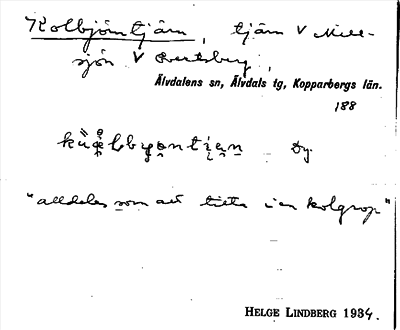 Kolbjörntjärn, tjärn V Mill-
sjön V Evertsberg,
Älvdalens sn, Älvdals tg, Kopparbergs län.
188
Dy.
"alldeles som att titta i en kolgrop"
HELGE LINDBERG 1934.